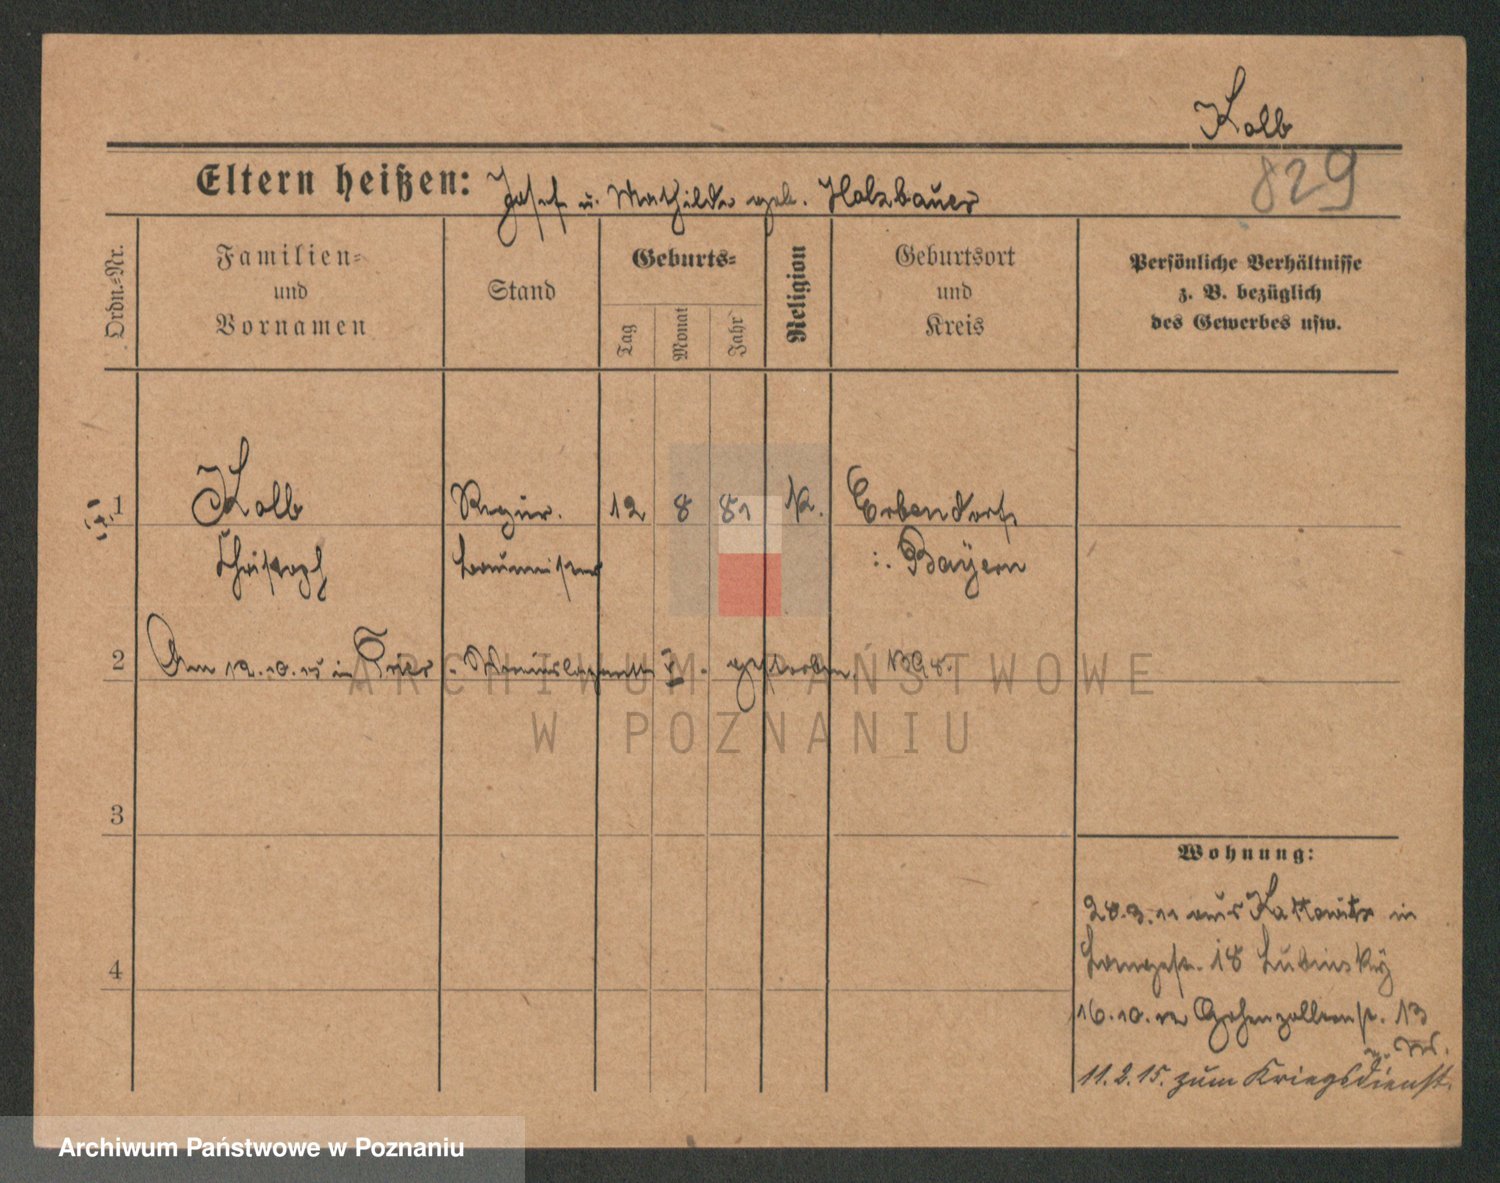 Kolb
829
Eltern heißen: Josef u. Mathilde geb. Holzbauer
Ordn.-Nr.
Familien-
und
Vornamen
Stand
Geburts-
Tag
Monat
Jahr
Religion
Geburtsort
und
Kreis
Persönliche Verhältnisse
z. B. bezüglich
des Gewerbes usw.
1 Kolb Regier. 12 8 81 K. Erbendorf
Christoph baumeister Bayern
2 Am 12.10.15 in Trier gestorben.
ARCHIWUM PAŃSTWOWE
W POZNANIU
3
Wohnung:
28.3.11 aus Kattowitz in
4
Langestr. 18 Lubinsky
16.10. Hohenzollernstr. 13
11.2.15. zum Kriegsdienst.
Archiwum Państwowe w Poznaniu